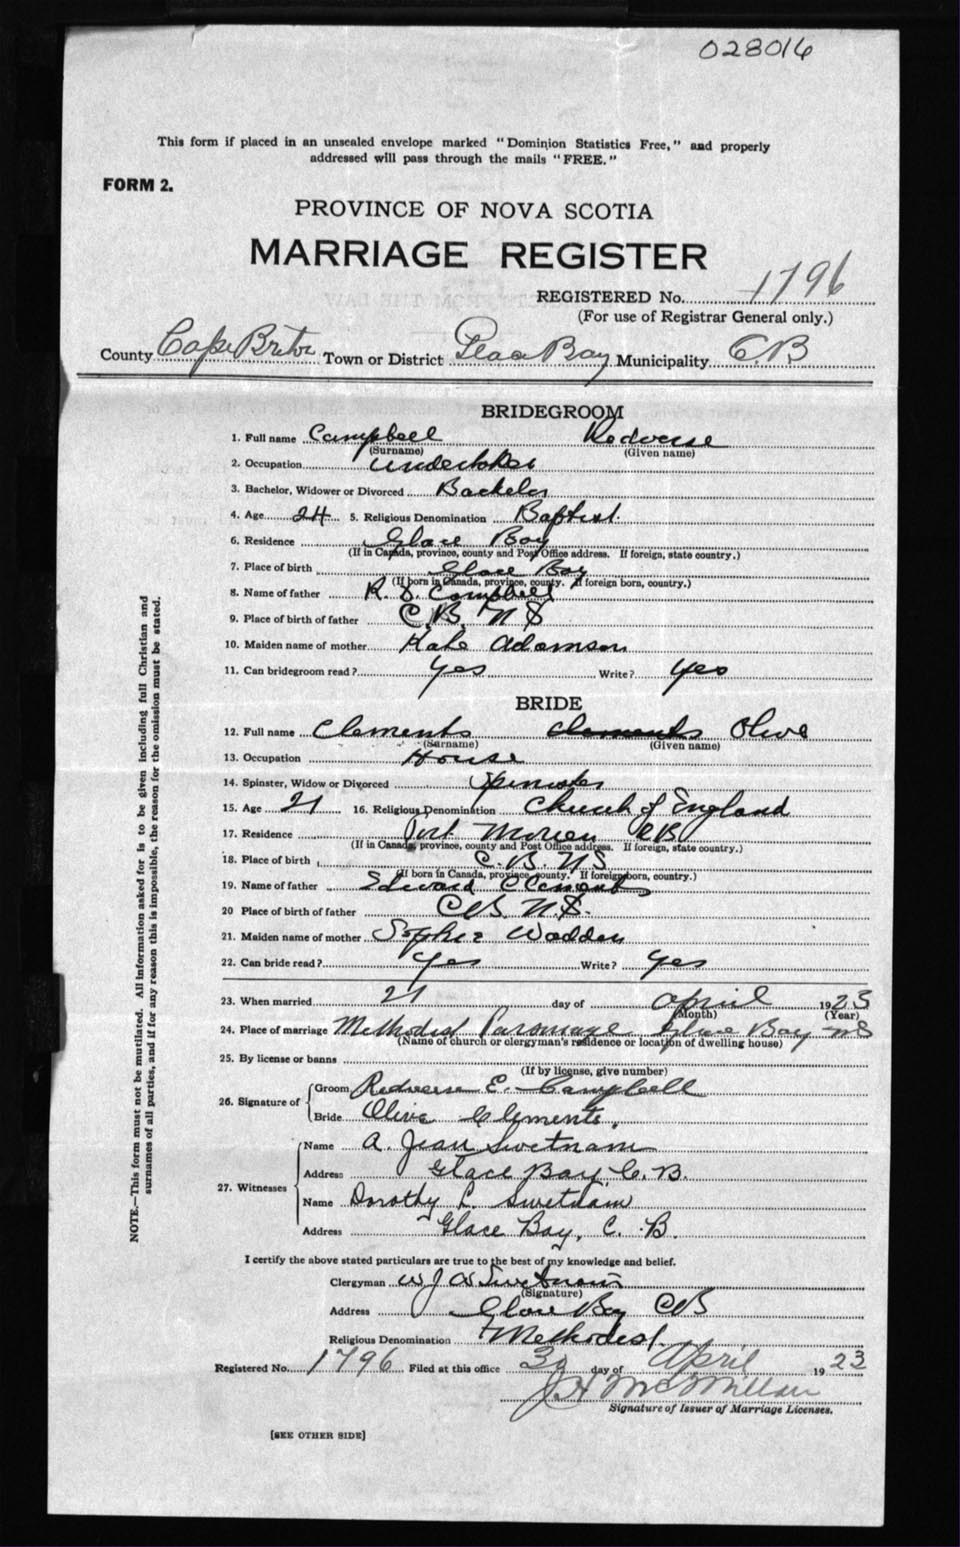 028016
This form if placed in an unsealed envelope marked "Dominion Statistics Free," and properly
addressed will pass through the mails "FREE."
FORM 2.
PROVINCE OF NOVA SCOTIA
MARRIAGE REGISTER
REGISTERED No. 1796
(For use of Registrar General only.)
County Cape Breton Town or District Glace Bay Municipality CB
BRIDEGROOM
1. Full name Campbell Redverse
(Surname) (Given name)
2. Occupation Undertaker
3. Bachelor, Widower or Divorced Bachelor
4. Age 24 5. Religious Denomination Baptist.
6. Residence Glace Bay
(If in Canada, province, county and Post Office address. If foreign, state country.)
7. Place of birth Glace Bay
(If born in Canada, province, county. If foreign born, country.)
8. Name of father R. D. Campbell
9. Place of birth of father C.B. N S
10. Maiden name of mother Kate Adamson
11. Can bridegroom read? Yes Write? Yes
BRIDE
12. Full name Clements Clements Olive
(Surname) (Given name)
13. Occupation House
14. Spinster, Widow or Divorced Spinster
15. Age 21 16. Religious Denomination Church of England
17. Residence Port Morien CB
(If in Canada, province, county and Post Office address. If foreign, state country.)
18. Place of birth C. B. N S
(If born in Canada, province, county. If foreign born, country.)
19. Name of father Edward Clements
20 Place of birth of father CB. N S.
21. Maiden name of mother Sophie Wadden
22. Can bride read? Yes Write? Yes
23. When married 21 day of April 1923
(Month) (Year)
24. Place of marriage Methodist Parsonage Glace Bay NS
(Name of church or clergyman's residence or location of dwelling house)
25. By license or banns
(If by license, give number)
26. Signature of Groom Redverse E. Campbell
Bride Olive Clements.
27. Witnesses Name A. Jean Swetnam
Address Glace Bay, C. B.
Name Dorothy L. Swetnam
Address Glace Bay, C. B.
I certify the above stated particulars are true to the best of my knowledge and belief.
Clergyman W J W Swetnam
(Signature)
Address Glace Bay CB
Religious Denomination Methodist
Registered No. 1796 Filed at this office 30 day of April 1923
J. H McMillan
Signature of Issuer of Marriage Licenses.
[SEE OTHER SIDE]
NOTE.—This form must not be mutilated. All information asked for is to be given including full Christian and
surnames of all parties, and if for any reason this is impossible, the reason for the omission must be stated.